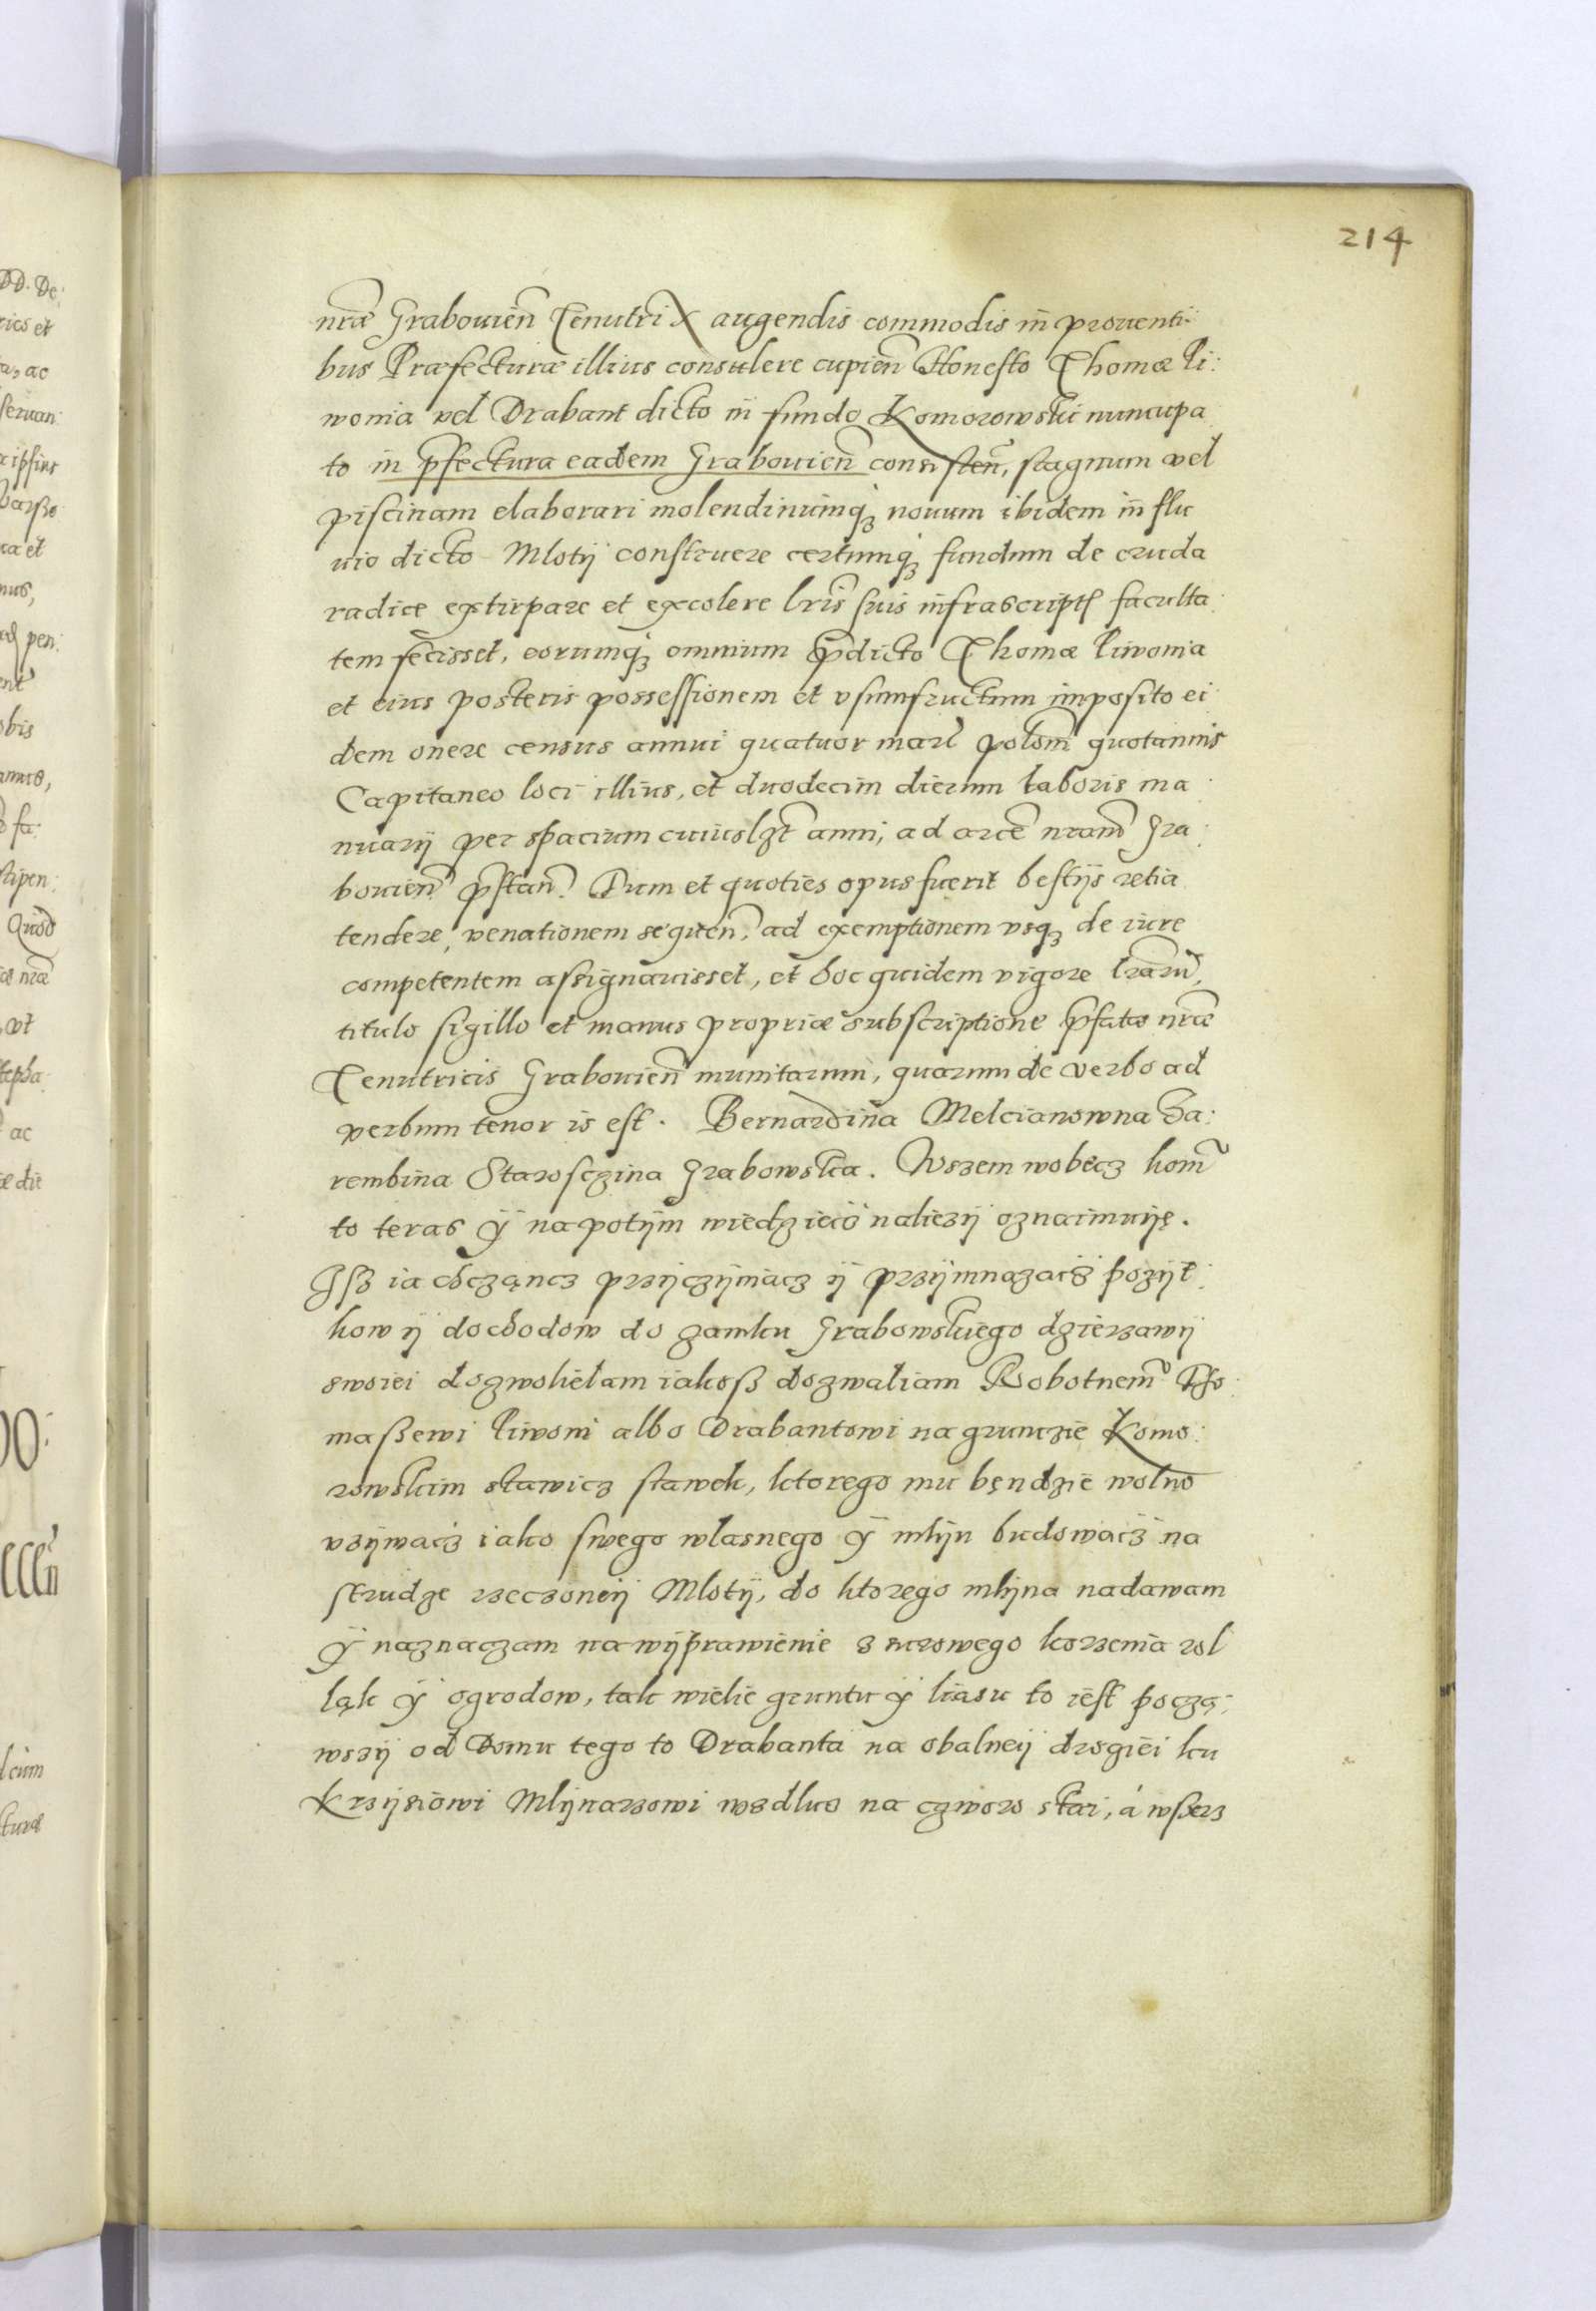 214
nrae Grabouien Tenutrix augendis commodis in prouenti-
bus Praefecturae illius consulere cupien Honesto Thomae Pi:
wonia vel Drabant dicto in fundo Komorowski nuncupa
to in pfectura eadem Grabouien consisten, stagnum vel
piscinam elaborari molendinumq; nouum ibidem in flu
uio dicto Mlotij construere certumq; fundum de cruda
radice extirpare et excolere lris suis infrascript facultа:
tem fecisset, eorumq; omnium pdicto Thomae Piwonia
et eius posteris possessionem et vsumfructum imposito ei
dem onere census annui quatuor marc polon quotannis
Capitaneo loci illius, et duodecim dierum laboris ma:
nuarij per spacium cuiuslzt anni, ad arce nram Gra:
bouien pstan. Tum et quoties opus fuerit bestijs retia
tendere, venationem sequen, ad exemptionem vsq; de iure
competentem assignauisset, et hoc quidem vigore lraru,
titulo sigillo et manus propriae subscriptione pfatae nrae
Tenutricis Grabouien munitarum, quarum de verbo ad
verbum tenor is est. Bernardina Melcianowna Za:
rembina Starosczina Grabowska. Wszem wobecz kom
to teras y napotijm wiedziecz naliezij oznaimuiję.
Isz ia chcząncz przijczijniacz ij przijmnazacz pozijt:
kow ij dochodow do zamku Grabowskiego dzierzawij
swoiei dozwolielam iakosz dozwaliam Robotnem Tho:
maszewi Piwoni albo Drabantowi na gruncie Komo:
rowskim stawicz stawek, ktorego mu będzie wolno
vzijwacz iako swego wlasnego y mlijn budowacz na
strudze rzeczoneij Mlotij, do ktorego mlijna nadawam
y naznaczam na wijprawienie z surowego korzenia rol
ląk y ogrodow, tak wielie gruntu y liasu to iest począ:
wszij od Domu tego to Drabanta na obalneij drogiei ku
Krzijsiowi Mlijnarzowi wzdlus na czworo stai, á wszerz